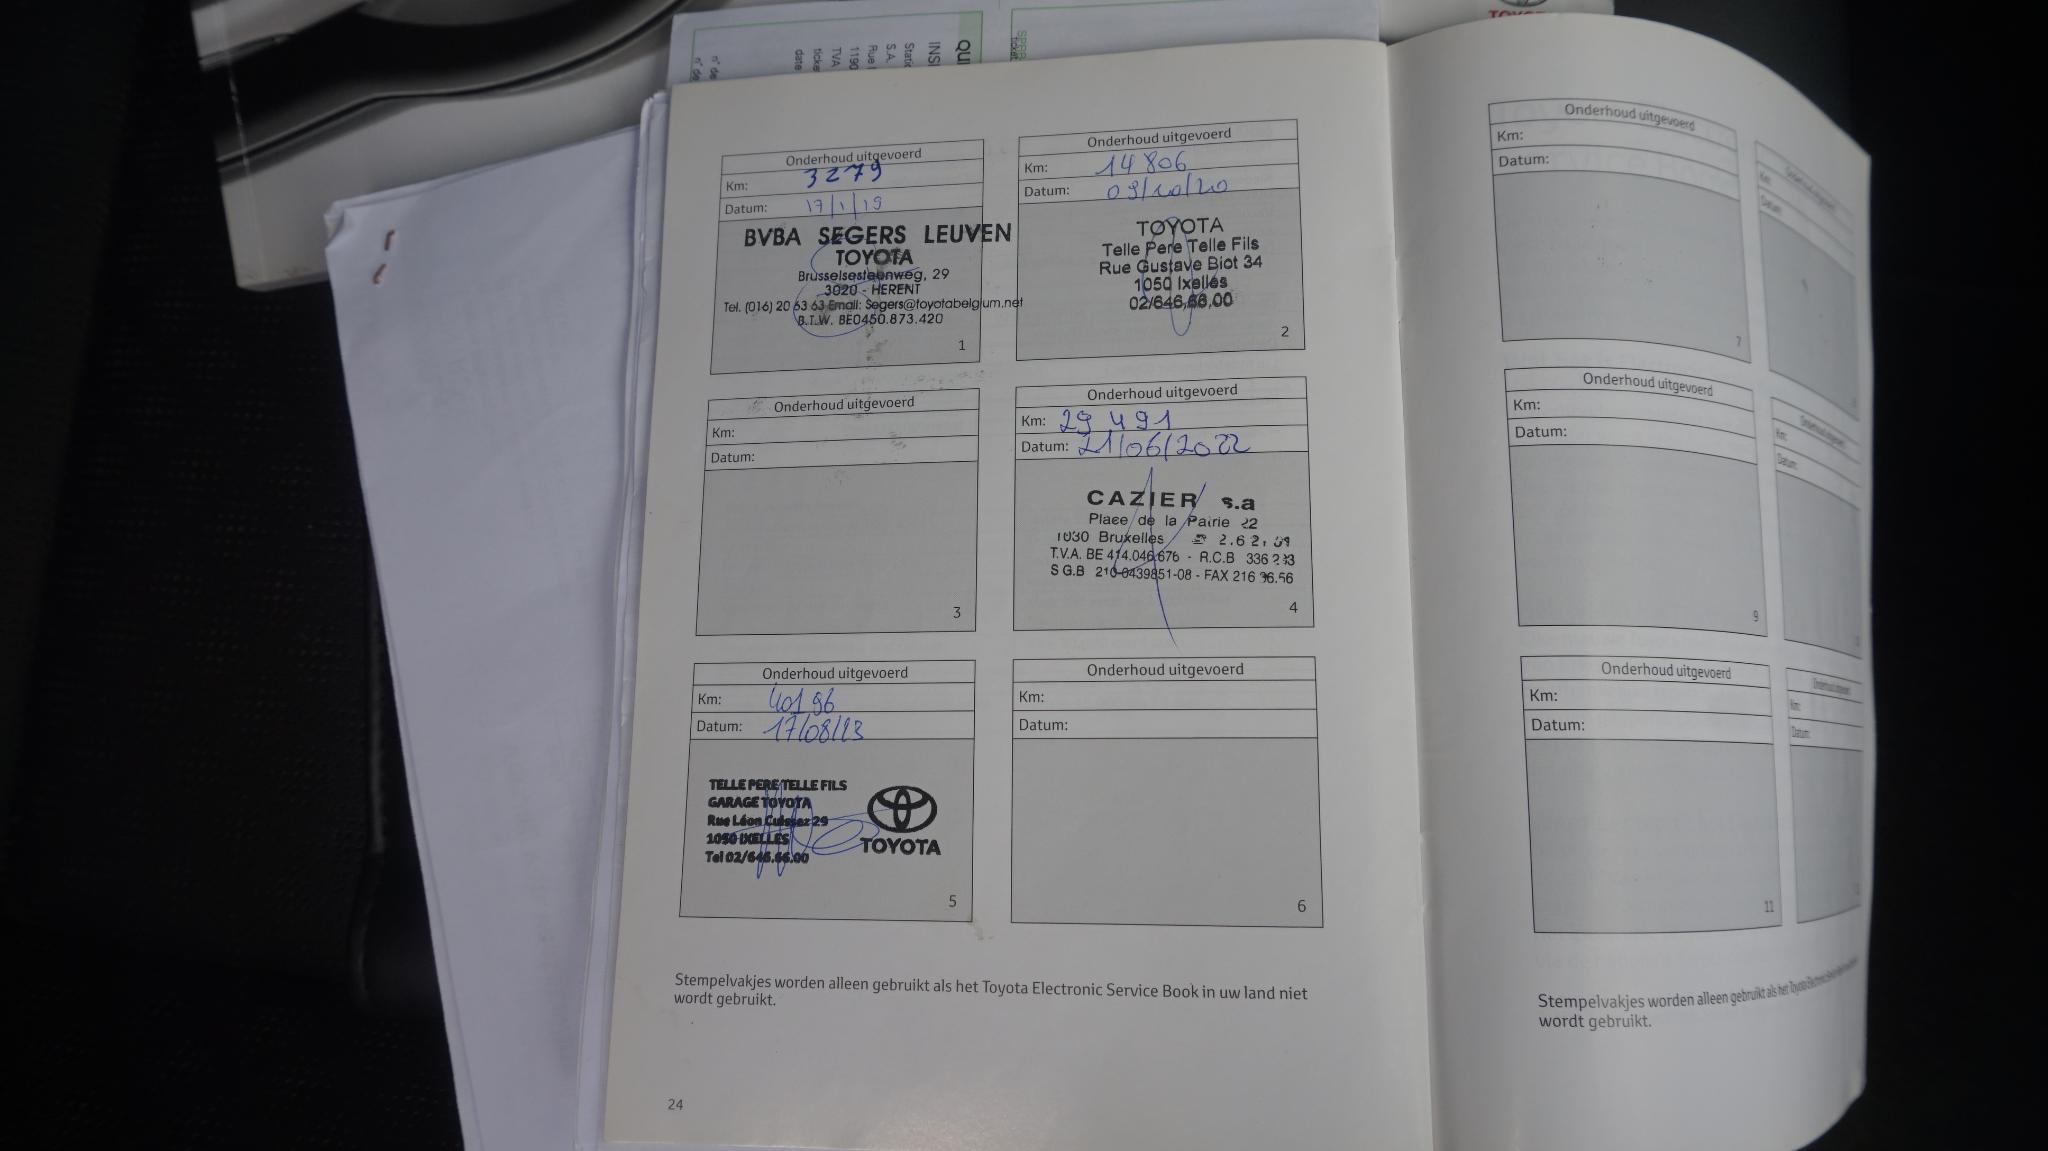 QUI
INS
S.A.
1190
TVA
date
n° de
n° de
TOYOTA
Onderhoud uitgevoerd
Km: 3279
Datum: 17/1/19
BVBA SEGERS LEUVEN
TOYOTA
Brusselsesteenweg, 29
3020 - HERENT
Tel. (016) 20 63 63 Email: Segers@toyotabelgium.net
B.T.W. BE0450.873.420
1
Onderhoud uitgevoerd
Km: 14806
Datum: 09/10/20
TOYOTA
Telle Pere Telle Fils
Rue Gustave Biot 34
1050 Ixelles
02/646,66,00
2
Onderhoud uitgevoerd
Km:
Datum:
3
Onderhoud uitgevoerd
Km: 29 491
Datum: 21/06/2022
CAZIER s.a
Place de la Patrie 22
1030 Bruxelles
T.V.A. BE 414.046.676 - R.C.B
S G.B 210-0439851-08 - FAX 216
4
Onderhoud uitgevoerd
Km: 40196
Datum: 17/08/23
TELLE PERE TELLE FILS
GARAGE TOYOTA
Rue Léon Cuissez 29
1050 IXELLES
Tel 02/646.66.00
TOYOTA
5
Onderhoud uitgevoerd
Km:
Datum:
6
Stempelvakjes worden alleen gebruikt als het Toyota Electronic Service Book in uw land niet
wordt gebruikt.
24
Onderhoud uitgevoerd
Km:
Datum:
7
Onderhoud uitgevoerd
Km:
Datum:
Onderhoud uitgevoerd
Km:
Datum:
9
Onderhoud uitgevoerd
Km:
Datum:
Onderhoud uitgevoerd
Km:
Datum:
11
Onderhoud uitgevoerd
Km:
Datum:
Stempelvakjes worden alleen gebruikt als het Toyota Electronic Service Book in uw land niet
wordt gebruikt.